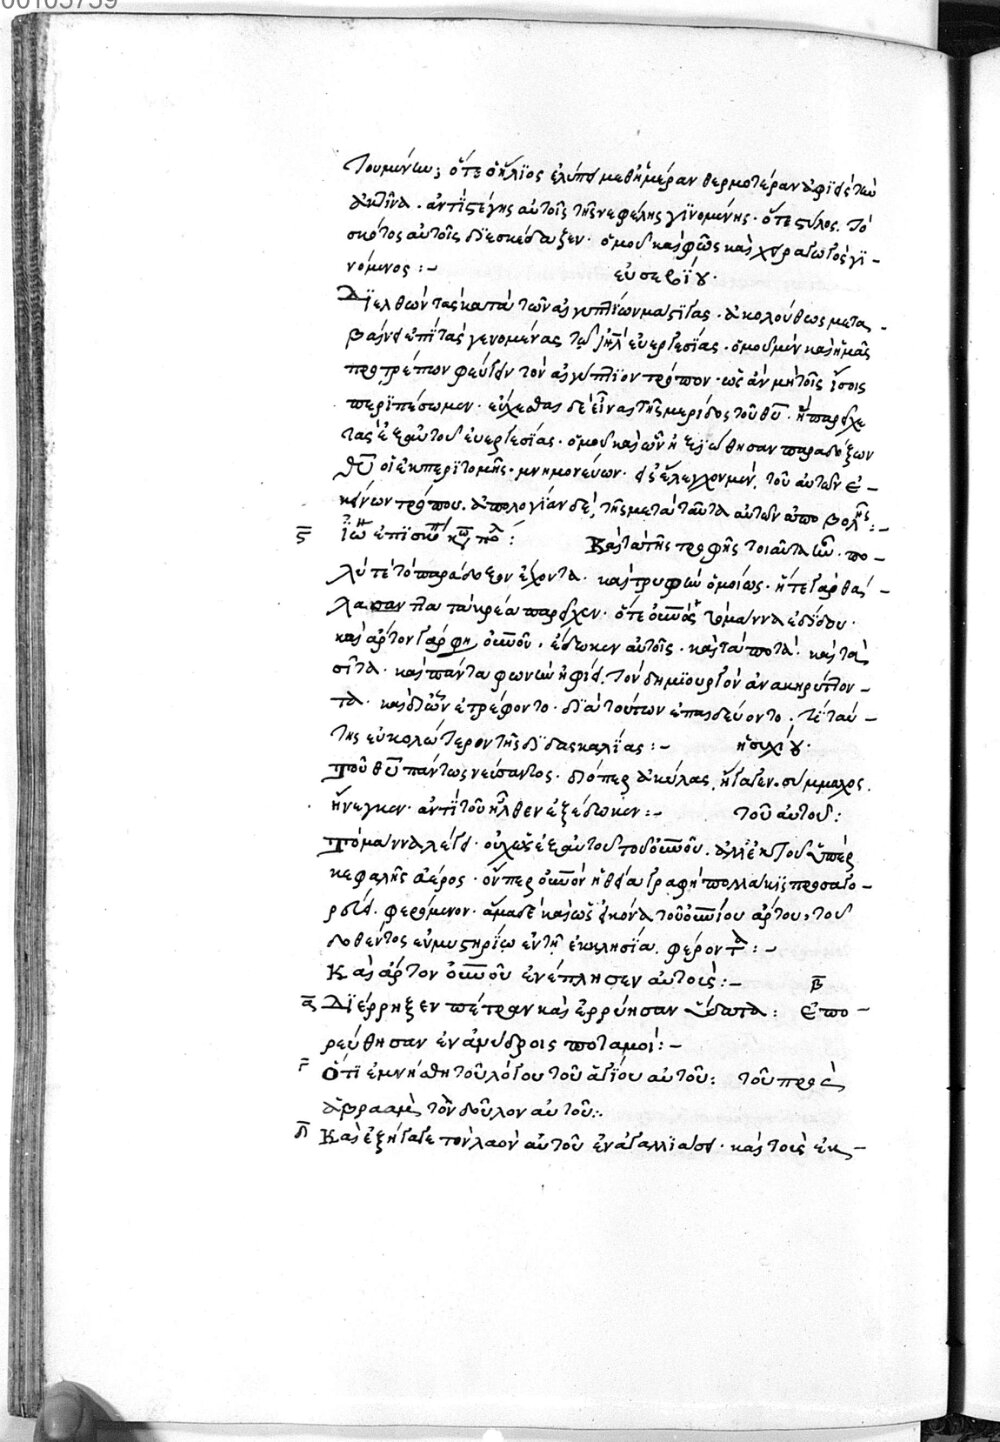 00105759
τουμένων; ὅτε ὁ ἥλϊος ἐλύπει μεθημέραν θερμοτέραν ἀφϊεὶς τὴν
ἀκτῖνα. ἀντιστέγης αὐτοῖς τῆς νεφέλης γϊνομένης. ὅτε στύλος. τὸ
σκότος αὐτοῖς δϊεσκέδαζεν. ὁμοῦ καὶ φῶς καὶ χειραγωγὸς γϊ-
νόμενος :-   εὐσεβϊου.
Δϊελθὼν τὰς κατὰ τῶν αἰγυπτίων μάστϊγας. ἀκολούθως μετα-
βαίνει ἐπὶ τὰς γενομένας τῷ ἰηλ εὐεργεσίας. ὁμοῦ μὲν καὶ ἡμᾶς
προτρέπων φεύγειν τὸν αἰγύπτϊον τρόπον. ὡς ἂν μὴ τοῖς ἴσοις
περϊπέσωμεν. εὔχεσθαι δὲ εἶναι τῆς μερίδος τοῦ θυ. ἣ παρεῖχε
τὰς ἐξ αὐτοῦ εὐεργεσίας. ὁμοῦ καὶ ὧν ἠξϊώθησαν παραδόξων
θυ οἱ ἐκ περϊτομῆς. μνημονεύων. εἰς ἔλεγχον μὲν, τοῦ αὐτῶν ἐ-
κείνων τρόπου. ἀπολογίαν δὲ, τῆς μετὰ ταῦτα αὐτῶν ἀποβολῆς :-
ς Ιω ἐπϊσκοπ κωνπολ :   Καὶ ταύτης τροφῆς τοιαῦτα ἦν. πο-
λύ τε τὸ παράδοξον ἔχοντα. καὶ τρυφὴν ὁμοίως. ἥ τε γὰρ θά-
λασσαν πλα τὰ κρέα παρεῖχεν. ὅτε οὐνος τὸ μάννα ἐδίδου.
καὶ ἄρτον γάρ φη, οὐνοῦ, ἔδωκεν αὐτοῖς. καὶ τὰ ποτὰ. καὶ τὰ
σῖτα. καὶ πάντα φωνὴν ἠφίει. τὸν δημϊουργὸν ἀνακηρύττον-
τα. καὶ δι ὧν ἐτρέφοντο. δϊὰ τούτων ἐπαιδεύοντο. τί ταύ-
της εὐκολώτερον τῆς δϊδασκαλίας :-   ἡσυχίου.
Τοῦ θυ πάντως νεύσαντος. διόπερ ἀκύλας, ἤγαγεν. σύμμαχος.
ἤνεγκεν. ἀντὶ τοῦ ἦλθεν ἐξέδωκεν :-   τοῦ αὐτοῦ :
Τὸ μάννα λέγει. οὐχ ὡς ἐξ αὐτοῦ τοῦ οὐνοῦ. ἀλλ ἐκ τοῦ ὑπὲρ
κεφαλῆς ἀέρος. ὅνπερ οὐνὸν ἡ θεία γραφὴ πολλάκϊς προσαγο-
ρεύει. φερόμενον. ἅμα δὲ καὶ ὡς εἰκόνα τοῦ οὐνίου ἄρτου, τοῦ
δοθέντος ἐν μυστηρίῳ ἐν τῇ ἐκκλησία. φέροντα :-
Καὶ ἄρτον οὐνοῦ ἐνέπλησεν αὐτοὺς :-   β
α Δϊέρρηξεν πέτραν καὶ ἐρρύησαν ὕδατα :   Ἐπο-
ρεύθησαν ἐν ἀνύδροις ποταμοί :-
γ Ὅτϊ ἐμνήσθη τοῦ λόγου τοῦ ἁγίου αὐτοῦ :   τοῦ πρὸς
ἀβραὰμ τὸν δοῦλον αὐτοῦ :.
δ Καὶ ἐξήγαγε τὸν λαὸν αὐτοῦ ἐν ἀγαλλϊάσει. καὶ τοὺς ἐκ-